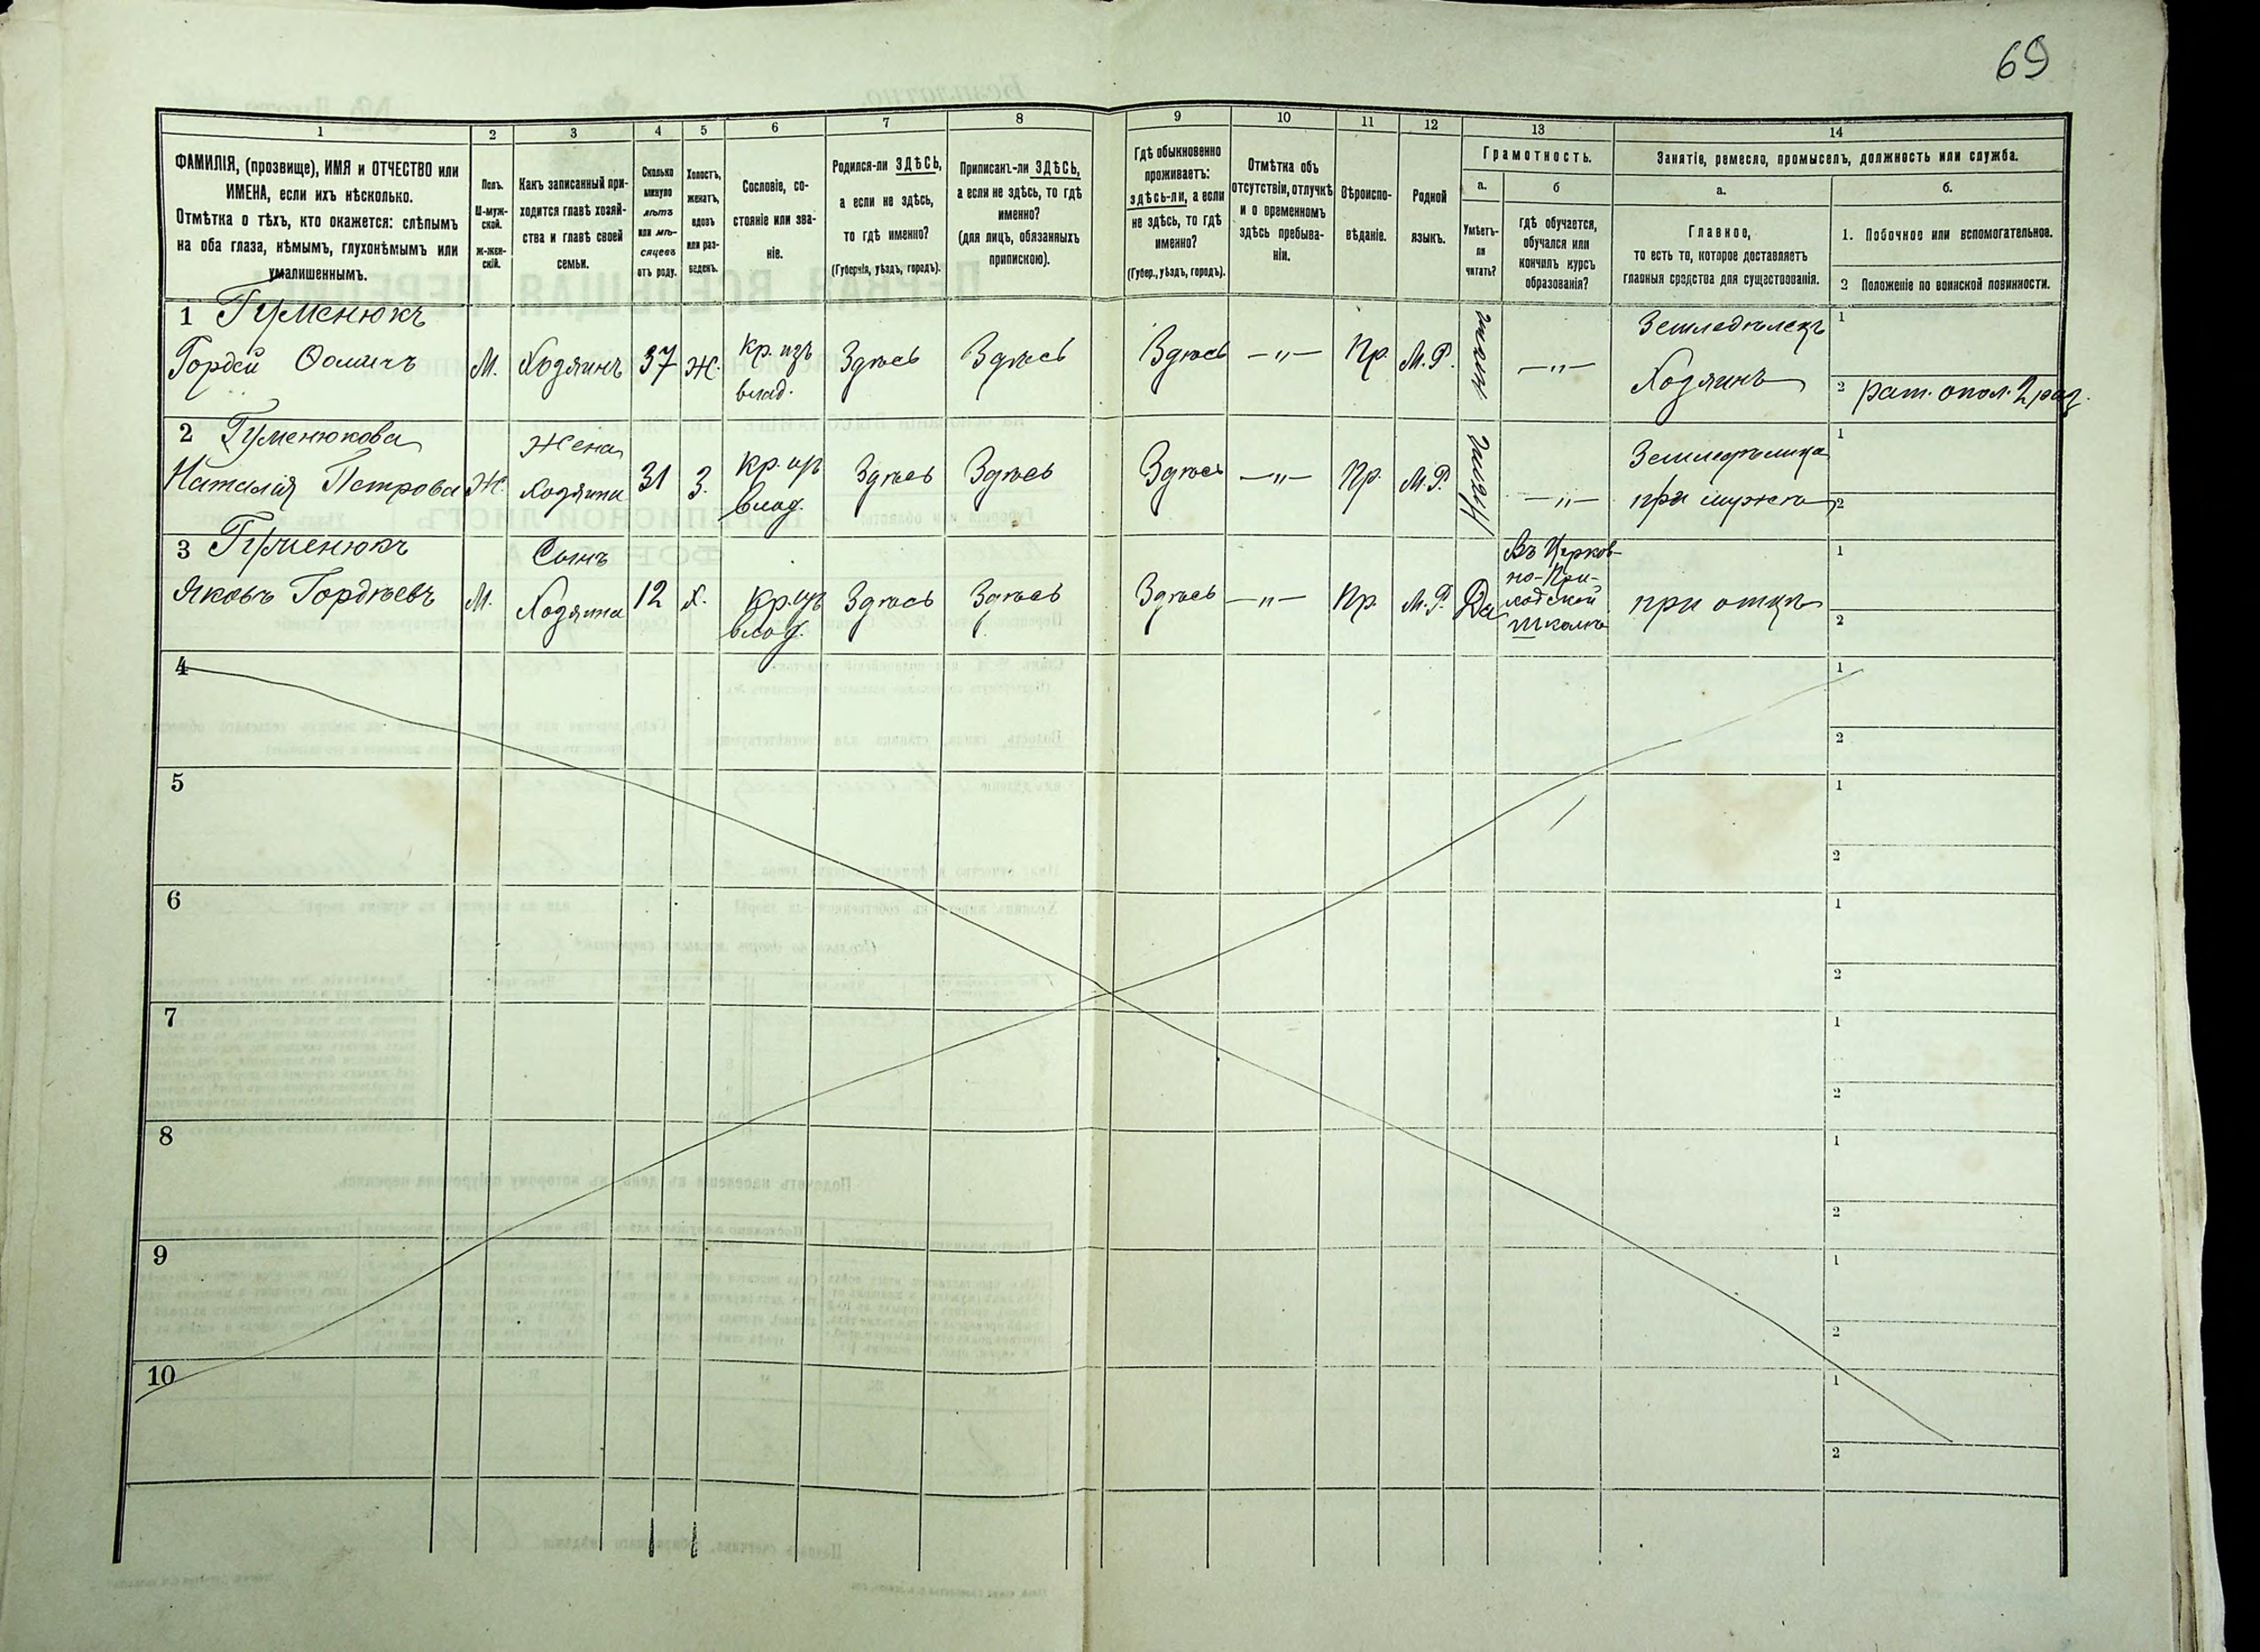 69
1
2
3
4
5
6
7
8
9
10
11
12
13
14
ФАМИЛІЯ, (прозвище), ИМЯ и ОТЧЕСТВО или
ИМЕНА, если ихъ нѣсколько.
Отмѣтка о тѣхъ, кто окажется: слѣпымъ
на оба глаза, нѣмымъ, глухонѣмымъ или
умалишеннымъ.
Полъ.
М-муж-
ской.
Ж-жен-
скій.
Какъ записанный при-
ходится главѣ хозяй-
ства и главѣ своей
семьи.
Сколько
минуло
лѣтъ
или мѣ-
сяцевъ
отъ роду.
Холостъ,
женатъ,
вдовъ
или раз-
веденъ.
Сословіе, со-
стояніе или зва-
ніе.
Родился-ли ЗДѢСЬ,
а если не здѣсь,
то гдѣ именно?
(Губернія, уѣздъ, городъ).
Приписанъ-ли ЗДѢСЬ,
а если не здѣсь, то гдѣ
именно?
(для лицъ, обязанныхъ
припискою).
Гдѣ обыкновенно
проживаетъ:
здѣсь-ли, а если
не здѣсь, то гдѣ
именно?
(Губер., уѣздъ, городъ).
Отмѣтка объ
отсутствіи, отлучкѣ
и о временномъ
здѣсь пребыва-
ніи.
Вѣроиспо-
вѣданіе.
Родной
языкъ.
Грамотность.
а.
Умѣетъ-
ли
читать?
б
гдѣ обучается,
обучался или
кончилъ курсъ
образованія?
Занятіе, ремесло, промыселъ, должность или служба.
а.
Главное,
то есть то, которое доставляетъ
главныя средства для существованія.
б.
1. Побочное или вспомогательное.
2 Положеніе по воинской повинности.
1 Гуменюкъ
Гордей Ѳомичъ
М.
Хозяинъ
37
Ж.
Кр. изъ
влад.
Здѣсь
Здѣсь
Здѣсь
—„—
Пр.
М.Р.
—„—
Земледѣлецъ
Хозяинъ
1
2 рат. опол. 2 раз.
2 Гуменюкова
Наталія Петрова
Ж.
Жена
хозяина
31
З.
Кр. изъ
влад.
Здѣсь
Здѣсь
Здѣсь
—„—
Пр.
М.Р.
—„—
Земледѣлица
при мужѣ
1
2
3 Гуменюкъ
Яковъ Гордѣевъ
М.
Сынъ
Хозяина
12
Х.
Кр. изъ
влад.
Здѣсь
Здѣсь
Здѣсь
—„—
Пр.
М.Р.
Да
Въ Церков-
но-При-
ходской
школѣ
при отцѣ
1
2
4
1
2
5
1
2
6
1
2
7
1
2
8
1
2
9
1
2
10
1
2